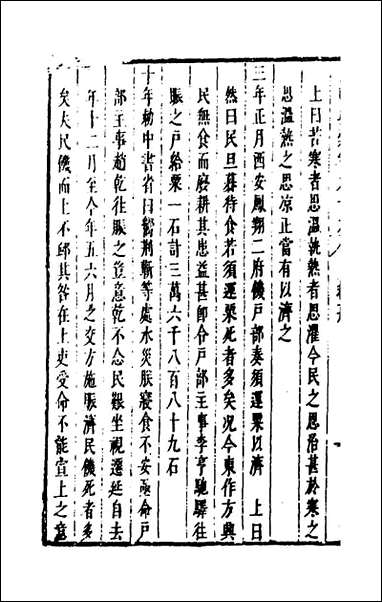 上曰苦寒者思溫執熱者思濯今民之思治甚於寒之
思溫熱之思凉正當有以濟之
三年正月西安鳳翔二府饑戶部奏須運粟以濟　上曰
然曰民旦暮待食若須運粟死者多矣况今東作方興
民無食而廢耕其患益甚卽命戶部主事李亨馳驛往
賑之戶給粟一石計三萬六千八百八十九石
十年勅中書省曰鬷荆蘄等處水災朕寢食不安亟命戶
部主事趙乾往賑之豈意乾不念民艱坐視遷延自去
年十二月至今年五六月之交方施賑濟民饑死者多
矣夫民饑而上不䘏其咎在上吏受命不能宣上之意